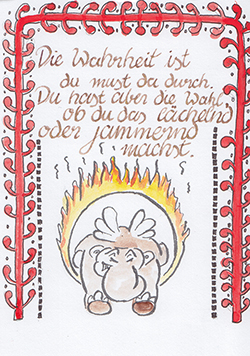 Die Wahrheit ist
du must da durch.
Du hast aber die Wahl,
ob du das lächelnd
oder jammernd
machst.